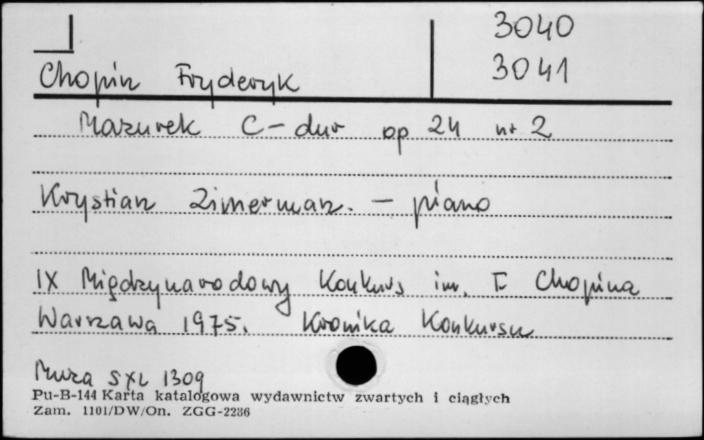 3040
3041
Chopin Fryderyk
Mazurek C-dur op 24 nr 2
Krystian Zimerman. - piano
IX Międzynarodowy Konkurs im. F. Chopina
Warszawa 1975. Kronika Konkursu
Muza SXL 1309
Pu-B-144 Karta katalogowa wydawnictw zwartych i ciągłych
Zam. 1101/DW/On. ZGG-2236